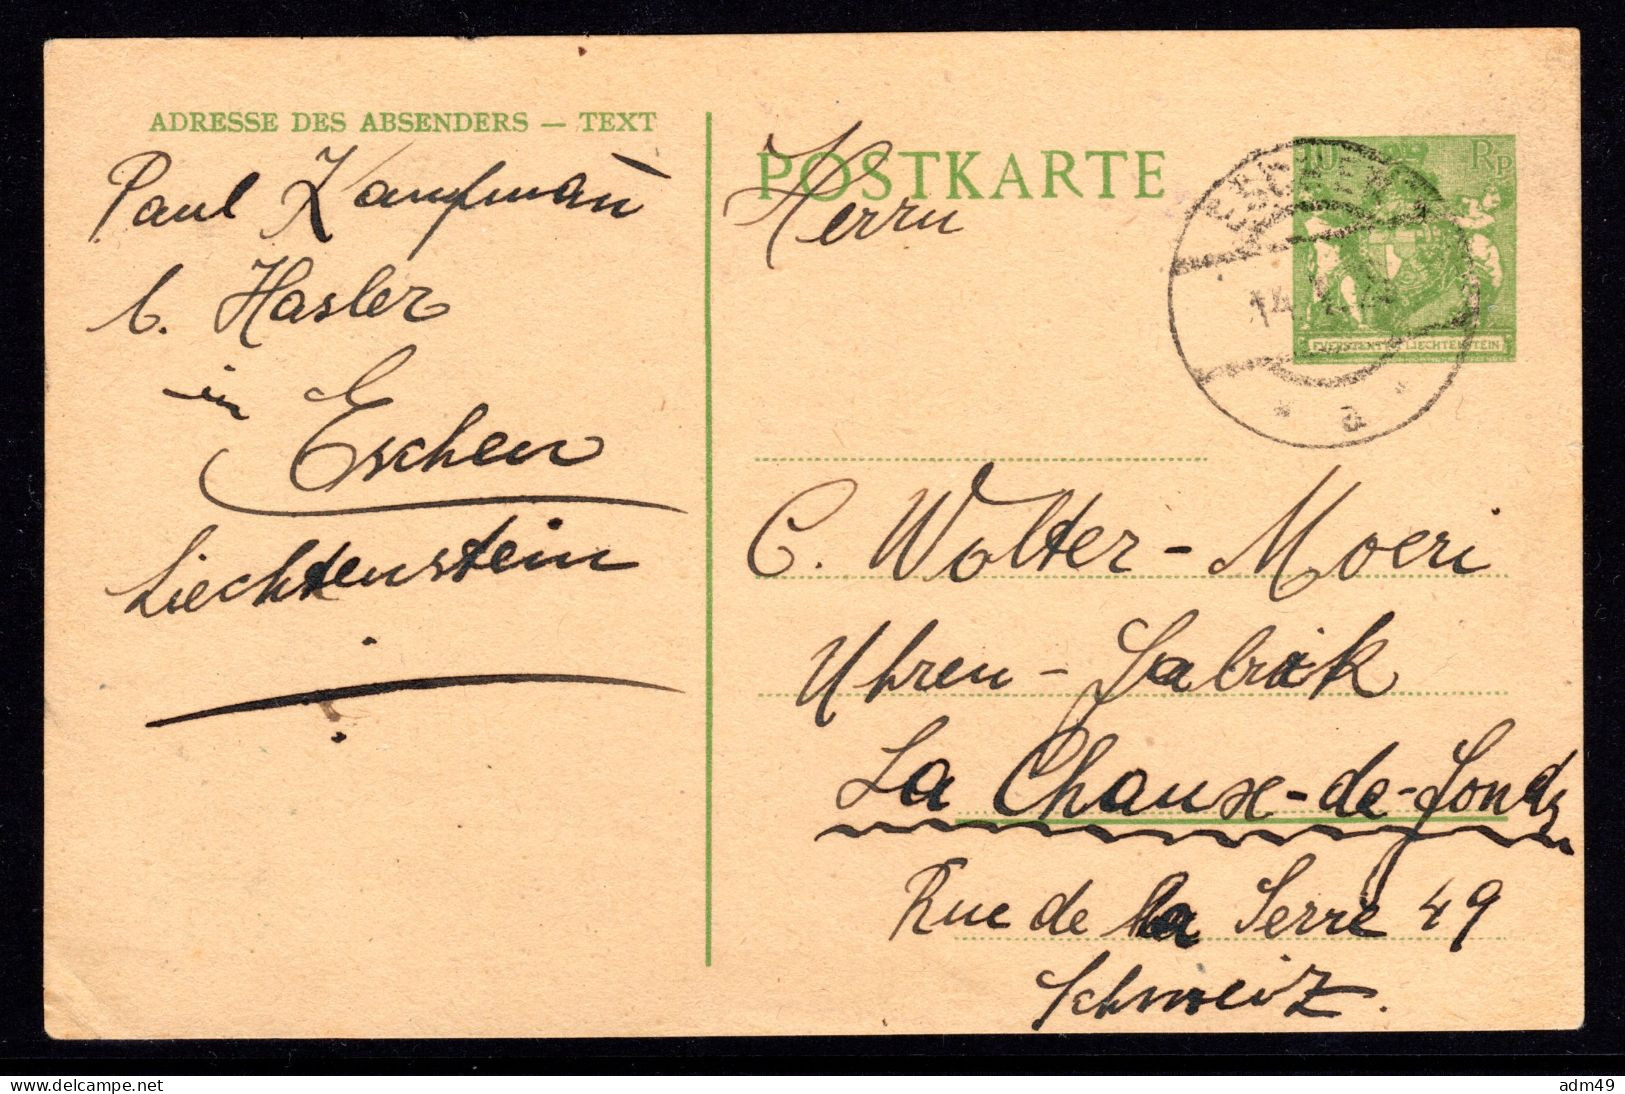 ADRESSE DES ABSENDERS — TEXT
Paul Kaufmañ
b. Hasler
in
Eschen
Liechtenstein
POSTKARTE
Herrn
C. Wolter-Moeri
Uhren-Fabrik
La Chaux-de-Fonds
Rue de la Serre 49
Schweiz.
10 Rp
FUERSTENTUM LIECHTENSTEIN
ESCHEN
14
a
adm49